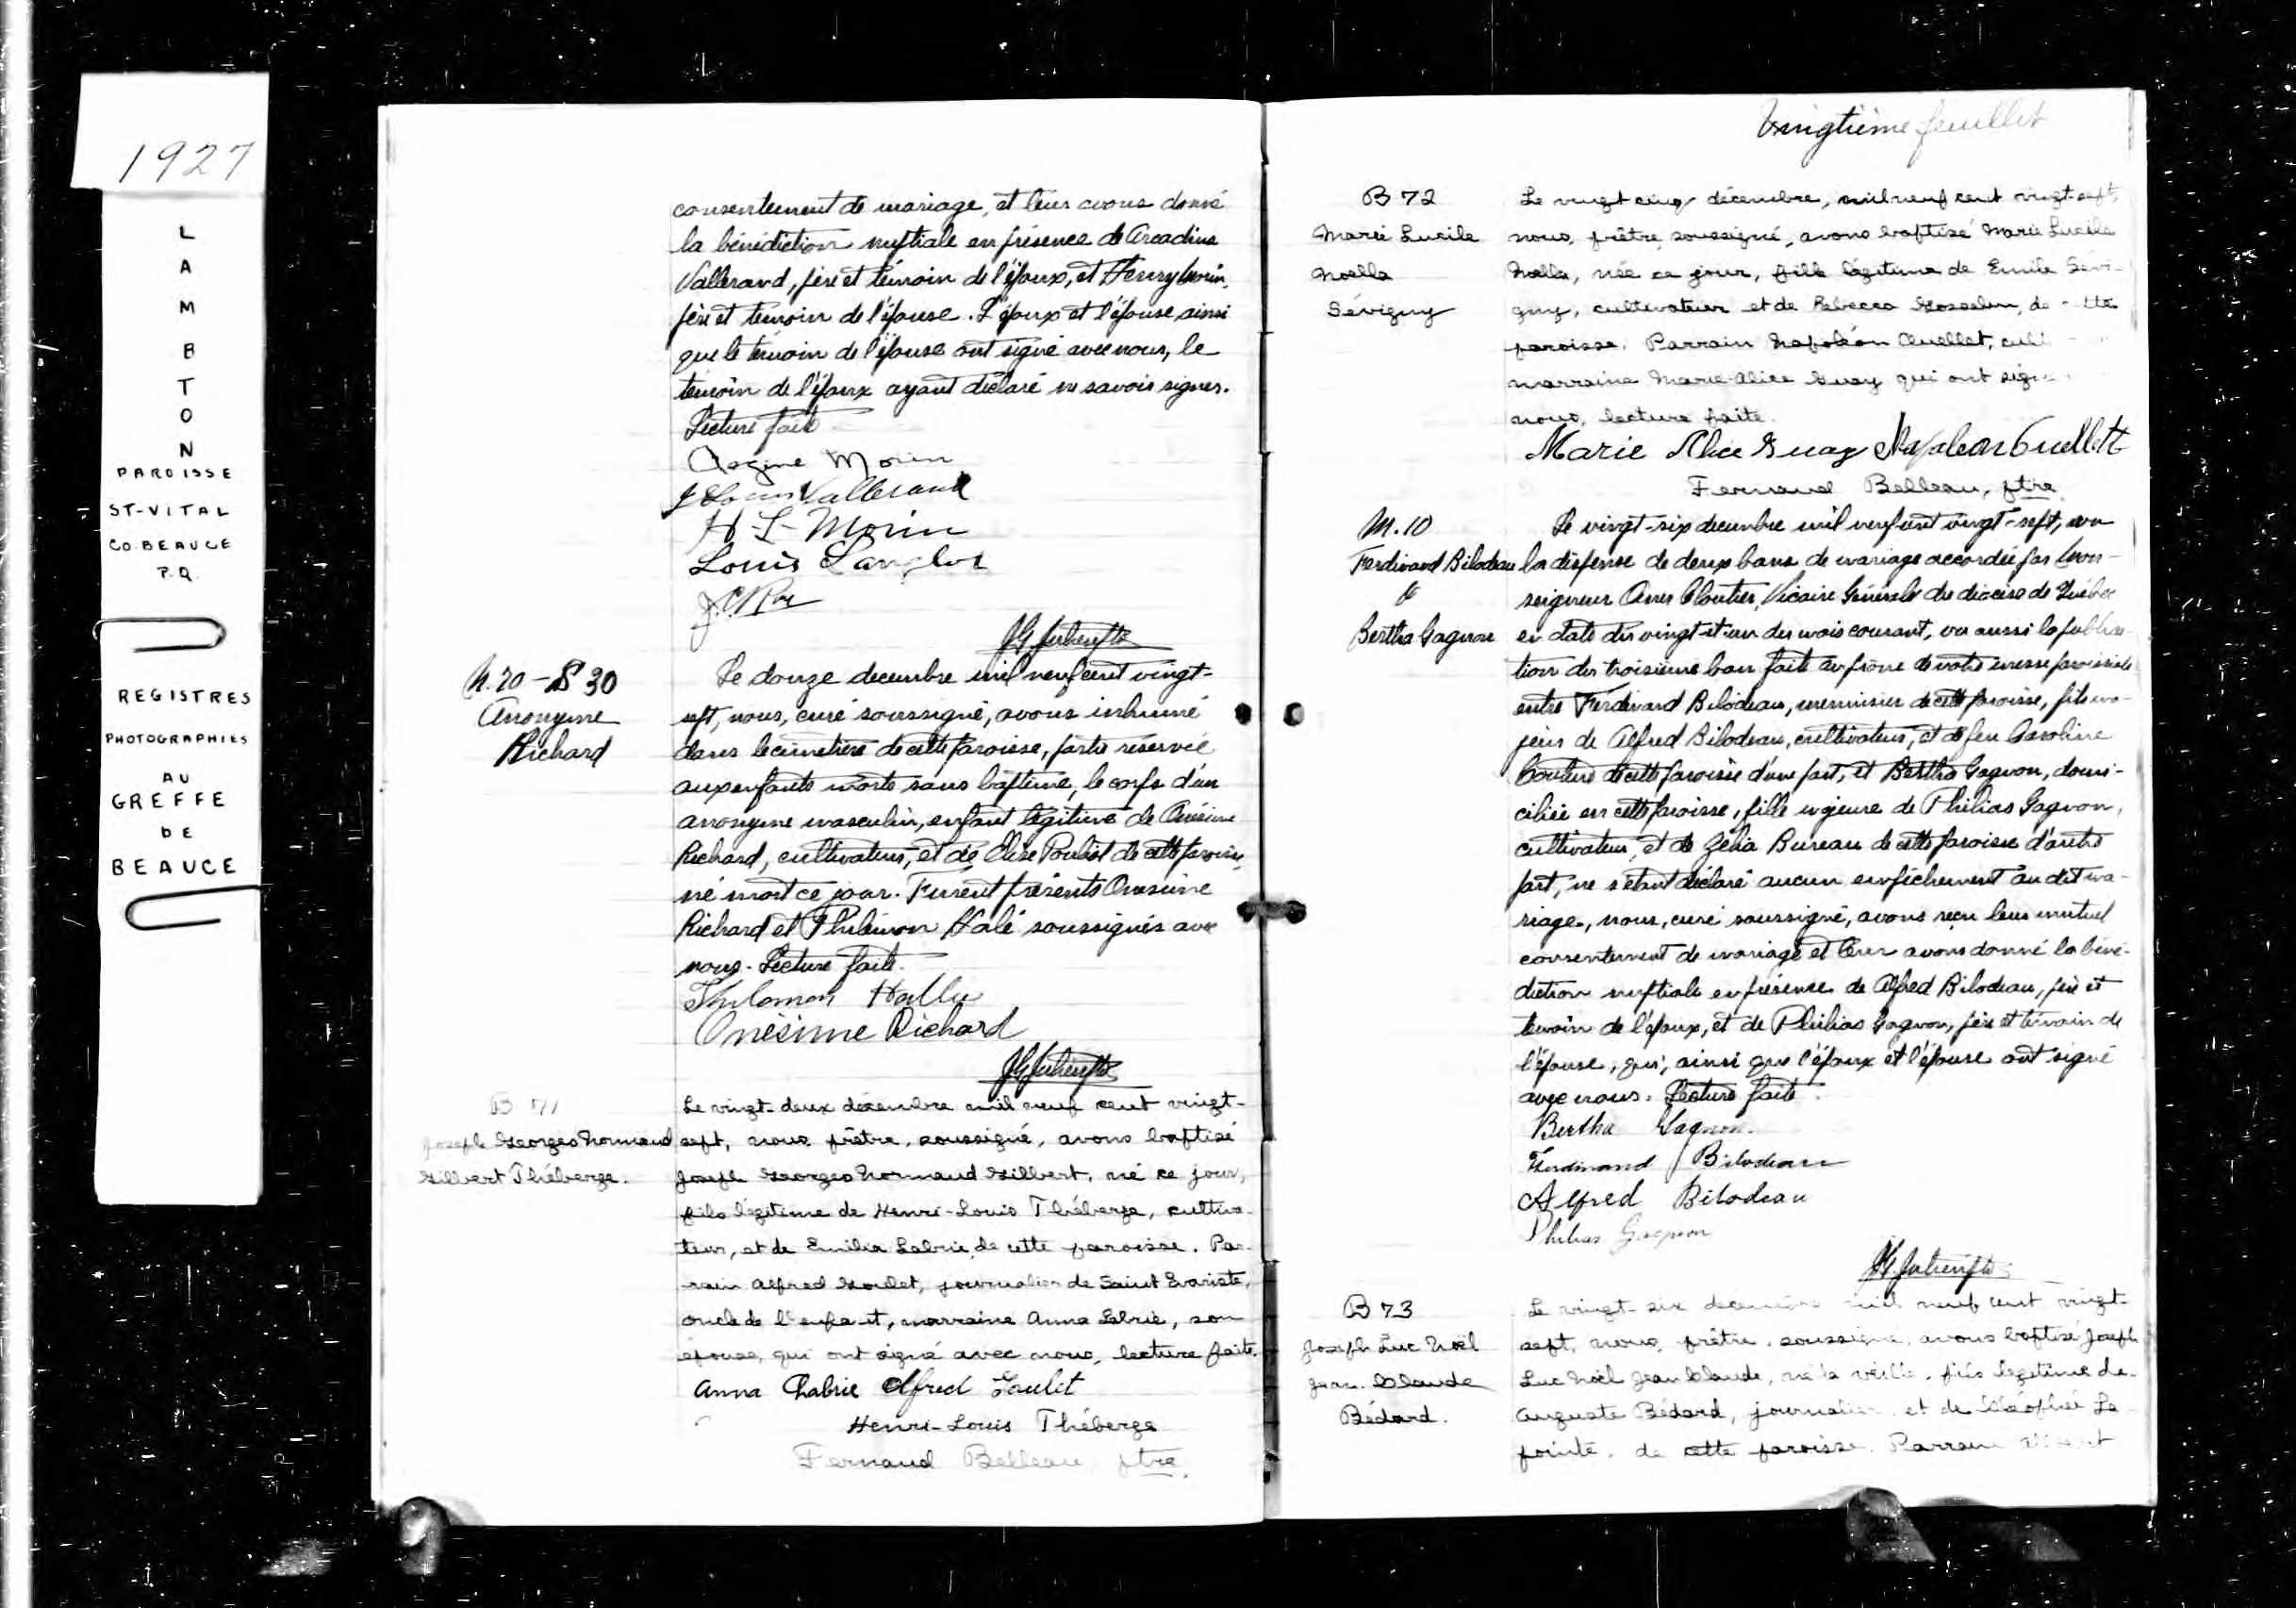 1927
L
A
M
B
T
O
N
PAROISSE
ST-VITAL
CO. BEAUCE
P.Q.
REGISTRES
PHOTOGRAPHIES
AU
GREFFE
DE
BEAUCE
consentement de mariage, et leur avons donné
la bénédiction nuptiale en présence de Arcadius
Vallerand, père et témoin de l'époux, et Henry Morin,
père et témoin de l'épouse. L'époux et l'épouse ainsi
que le témoin de l'épouse ont signé avec nous, le
témoin de l'époux ayant déclaré ne savoir signer.
Lecture faite
Morin
Vallerand
H L Morin
Louis Langlois
J. Roy
Le douze decembre mil neuf cent vingt-
N. 20 - S 30
Anonyme
Richard
sept, nous, curé soussigné, avons inhumé
dans le cimetière de cette paroisse, partie réservée
aux enfants morts sans baptême, le corps d'un
anonyme masculin, enfant légitime de Onésime
Richard, cultivateur, et de Elise Pouliot de cette paroisse,
né mort ce jour. Furent présents Onesime
Richard et Philémon Hallé soussignés avec
nous. Lecture faite.
Philemon Halle
Onésime Richard
B 71
Joseph Georges Normand
Gilbert Théberge.
Le vingt-deux décembre mil neuf cent vingt-
sept, nous prêtre, soussigné, avons baptisé
Joseph Georges Normand Gilbert, né ce jour,
fils légitime de Henri-Louis Théberge, cultiva-
teur, et de Emilia Labrie, de cette paroisse. Par-
rain Alfred Goulet, journalier de Saint Evariste,
oncle de l'enfant, marraine Anna Labrie, son
épouse, qui ont signé avec nous, lecture faite.
Anna Labrie Alfred Goulet
Henri-Louis Théberge
Fernand Belleau ptre.
Vingtième feuillet
B 72
Marie Lucile
Noella
Sévigny
Le vingt cinq décembre, mil neuf cent vingt-sept,
nous, prêtre soussigné, avons baptisé Marie Lucile
Noella, née ce jour, fille légitime de Emile Sévi-
gny, cultivateur et de Rebecca Gosselin, de
paroisse. Parrain Napoléon Ouellet,
marraine Marie-Alice Guay qui ont
nous, lecture faite.
Marie Alice Guay Napoleon Ouellett
Fernand Belleau, ptre
M. 10
Ferdinand Bilodeau
&
Bertha Gagnon
Le vingt-six decembre mil neuf cent vingt-sept, vu
la dispense de deux bans de mariage accordée par Mon-
seigneur Cloutier, Vicaire Générale du diocèse de Québec
en date du vingt-et-un du mois courant, vu aussi la publica-
tion du troisième ban faite au prône de notre messe paroissiale
entre Ferdinand Bilodeau, menuisier de cette paroisse, fils ma-
jeur de Alfred Bilodeau, cultivateur, et de feu Caroline
Couture de cette paroisse d'une part, et Bertha Gagnon, domi-
ciliée en cette paroisse, fille majeure de Philias Gagnon,
cultivateur, et de Zélia Bureau de cette paroisse d'autre
part, ne s'étant déclaré aucun empêchement au dit ma-
riage, nous, curé soussigné, avons reçu leur mutuel
consentement de mariage et leur avons donné la béné-
diction nuptiale en présence de Alfred Bilodeau, père et
témoin de l'époux, et de Philias Gagnon, père et témoin de
l'épouse, qui, ainsi que l'époux et l'épouse ont signé
avec nous. Lecture faite.
Bertha Gagnon.
Ferdinand Bilodeau
Alfred Bilodeau
Philias Gagnon
B 73
Joseph Luc Noël
Jean-Claude
Bédard.
Le vingt-six decembre mil neuf cent vingt-
sept, nous, prêtre, soussigné, avons baptisé Joseph
Luc Noël Jean Claude, né la veille, fils légitime de
Auguste Bédard, journalier, et de Cléophée La-
pointe, de cette paroisse. Parrain